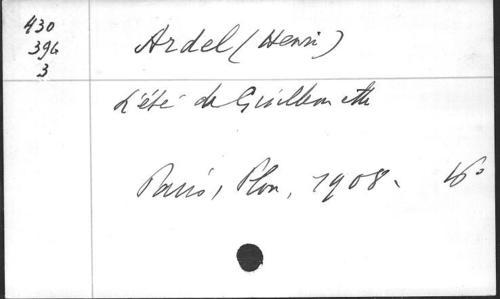 430
396
3
Ardel (Henri)
L'été de Guillemette
Paris, Plon, 1908. 16°